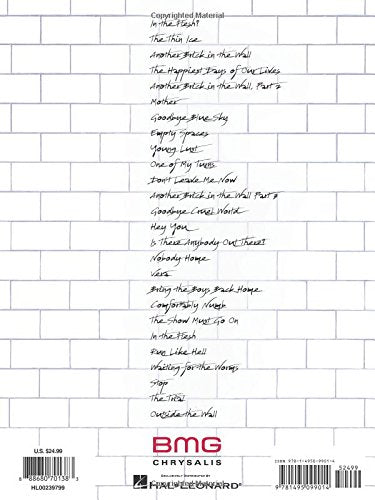 Copyrighted Material
In the Flesh?
The Thin Ice
Another Brick in the Wall
The Happiest Days of Our Lives
Another Brick in the Wall, Part 2
Mother
Goodbye Blue Sky
Empty Spaces
Young Lust
One of My Turns
Don't Leave Me Now
Another Brick in the Wall Part 3
Goodbye Cruel World
Hey You
Is There Anybody Out There?
Nobody Home
Vera
Bring the Boys Back Home
Comfortably Numb
The Show Must Go On
In the Flesh
Run Like Hell
Waiting for the Worms
Stop
The Trial
Outside the Wall
U.S. $24.99
8 88680 70138 3
HL00239799
BMG
CHRYSALIS
EXCLUSIVELY DISTRIBUTED BY
HAL•LEONARD®
Copyrighted Material
ISBN 978-1-4950-9901-4
52499
9 781495 099014